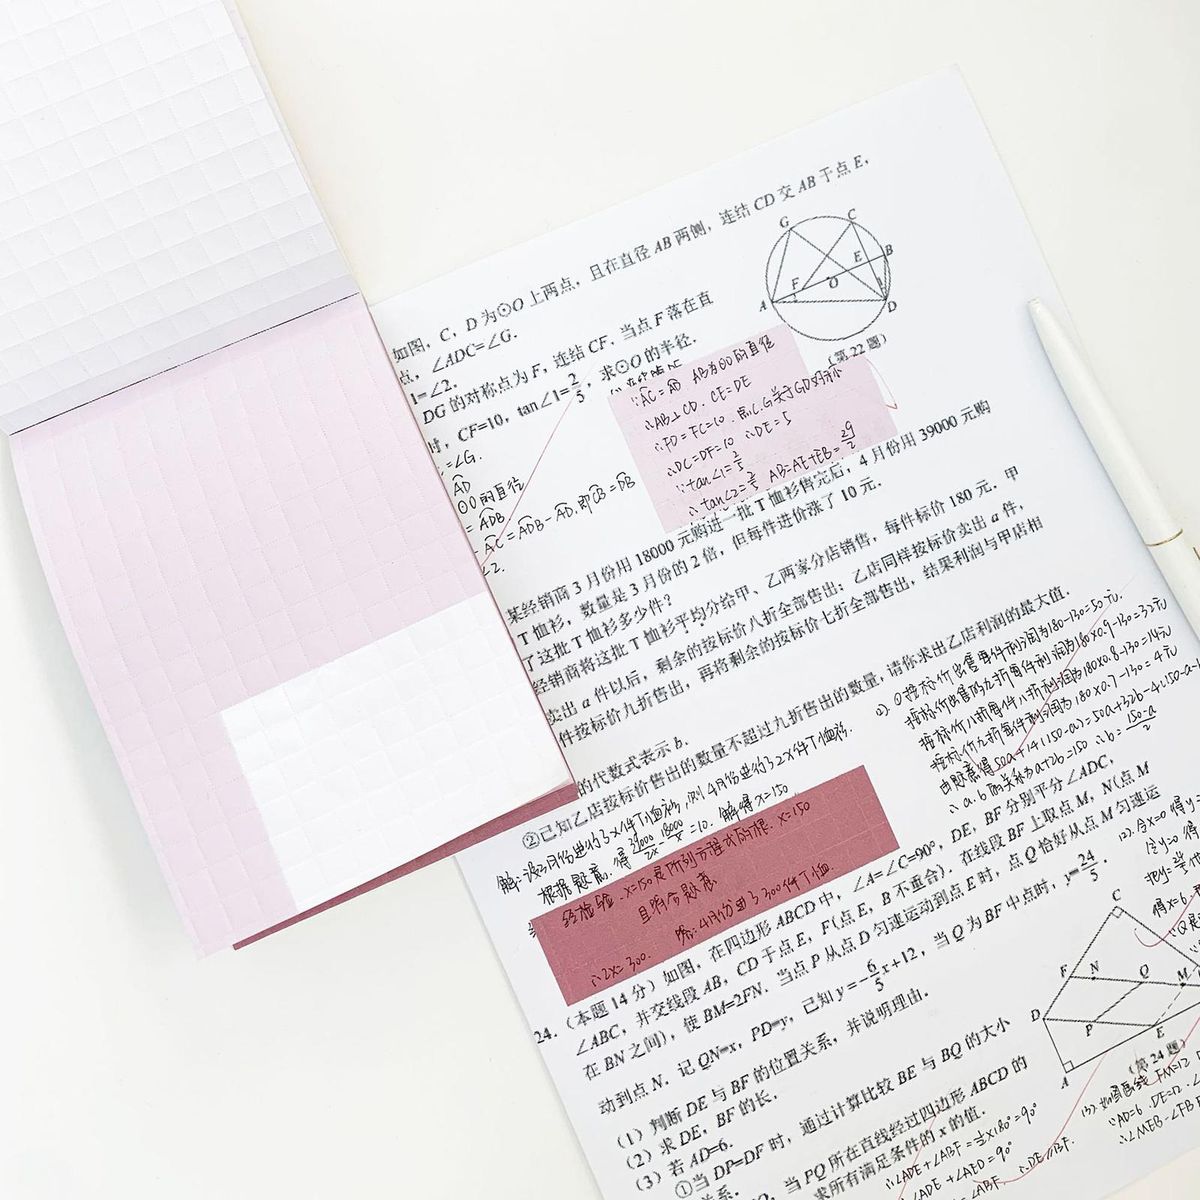 如图，C，D 为⊙O 上两点，且在直径 AB 两侧，连结 CD 交 AB 于点 E，
点，∠ADC=∠G.
1=∠2.
DG 的对称点为 F，连结 CF．当点 F 落在直
时，CF=10，tan∠1=2/5，求⊙O 的半径．
G C E B F O A D
（第 22 题）
=∠G.
AD
⊙O的直径
=ADB
-AC=ADB-AD.即CB=DB
∠2.
∵AC=AD AB为⊙O的直径
∴AB⊥CD.CE=DE
∴FD=FC=10.点C.G关于GD对称
∴DC=DF=10 ∴DE=5
∵tan∠1=2/5
∴tan∠2=2/5 AB=AE+EB=29/2
某经销商 3 月份用 18000 元购进一批 T 恤衫售完后，4 月份用 39000 元购
T 恤衫，数量是 3 月份的 2 倍，但每件进价涨了 10 元．
了这批 T 恤衫多少件？
经销商将这批 T 恤衫平均分给甲、乙两家分店销售，每件标价 180 元．甲
卖出 a 件以后，剩余的按标价八折全部售出；乙店同样按标价卖出 a 件，
件按标价九折售出，再将剩余的按标价七折全部售出，结果利润与甲店相
的代数式表示 b．
②已知乙店按标价售出的数量不超过九折售出的数量，请你求出乙店利润的最大值．
解:设3月份进了x件T恤衫,则4月份进行了2x件T恤衫.
根据题意.得 39000/2x-18000/x=10. 解得x=150
经检验.x=150是所列方程式的根.x=150
且符合题意
∴2x=300. 答:4月份进了300件T恤
按标价出售每件利润为180-130=50元.
按标价九折每件利润为180×0.9-130=32元
按标价八折每件利润为180×0.8-130=14元
按标价七折每件利润为180×0.7-130=4元
由题意得50a+14(150-a)=50a+32b-4(150-a-
∴a.b的关系为a+2b=150 ∴b=(150-a)/2
24.（本题 14 分）如图，在四边形 ABCD 中，∠A=∠C=90°，DE，BF 分别平分∠ADC，
∠ABC，并交线段 AB，CD 于点 E，F(点 E，B 不重合)．在线段 BF 上取点 M，N(点 M
在 BN 之间)，使 BM=2FN．当点 P 从点 D 匀速运动到点 E 时，点 Q 恰好从点 M 匀速运
动到点 N．记 QN=x，PD=y，已知 y=-6/5x+12，当 Q 为 BF 中点时，y=24/5．
（1）判断 DE 与 BF 的位置关系，并说明理由．
（2）求 DE，BF 的长．
（3）若 AD=6．
①当 DP=DF 时，通过计算比较 BE 与 BQ 的大小
关系．
当 PQ 所在直线经过四边形 ABCD 的
求所有满足条件的 x 的值．
C F N Q M D P E A
（第 24 题）
(2).令x=0 得y=
令y=0 得
得x=6.
∴∠ADE+∠ABF=½×180°=90°
∠ADE+∠AED=90°
∠ABF. ∴DE∥BF.
(3).如图画线 FM=12
∵AD=6 .DE=12.
∴∠MEB=∠FB